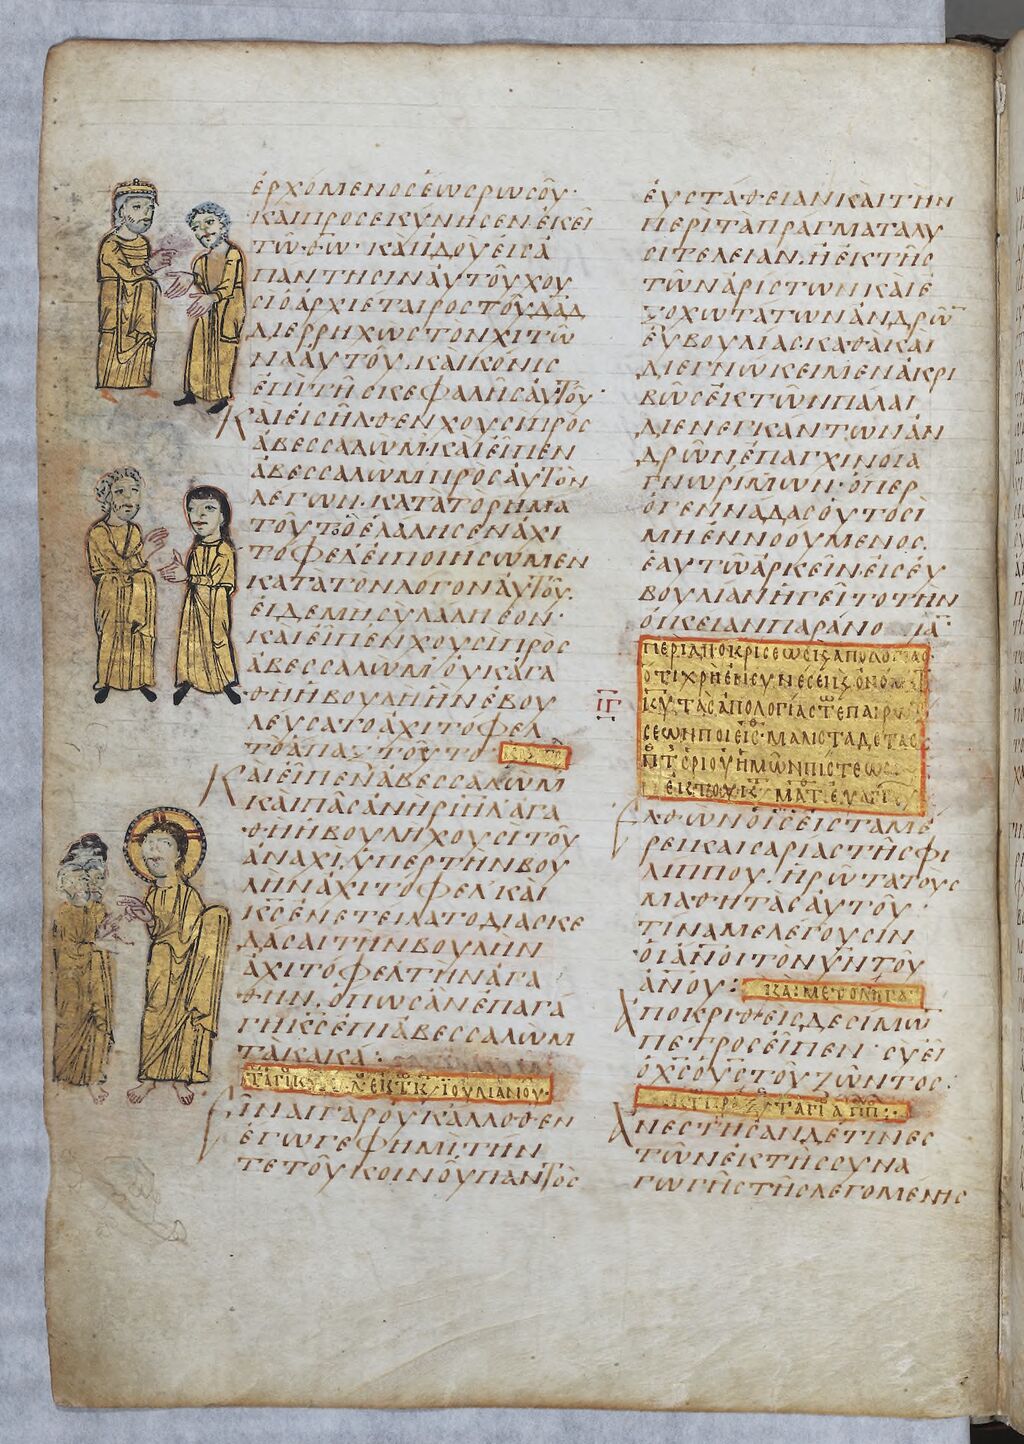 ἐρχόμενος ἕως ρωσ οὗ·
καὶ προσεκύνησεν ἐκεῖ
τῶ θῶ· καὶ ἰδοὺ εἰς ἀ
πάντησιν αὐτοῦ χου
σὶ ὁ ἀρχιεταῖρος τοῦ δαδ
διερρηχὼς τὸν χιτῶ
να αὐτοῦ· καὶ κόνις
ἐπὶ τῆς κεφαλῆς αὐτοῦ·
Καὶ εἰσῆλθεν χουσὶ πρὸς
ἀβεσσαλώμ· καὶ εἶπεν
ἀβεσσαλὼμ πρὸς αὐτὸν
λέγων· κατὰ τὸ ρῆμα
τοῦτο ὃ ἐλάλησεν ἀχι
τόφελ· εἰ ποιήσωμεν
κατὰ τὸν λόγον αὐτοῦ·
εἰ δὲ μὴ σὺ λάλησον·
καὶ εἶπεν χουσὶ πρὸς
ἀβεσσαλώμ· οὐκ ἀγα
θὴ ἡ βουλὴ ἣν ἐβου
λεύσατο ἀχιτόφελ
τὸ ἅπαξ τοῦτο
Καὶ εἶπεν ἀβεσσαλὼμ
καὶ πᾶς ἀνὴρ ιηλ ἀγα
θὴ ἡ βουλὴ χουσὶ τοῦ
ἀραχὶ, ὑπὲρ τὴν βου
λὴν ἀχιτόφελ· καὶ
κς ἐνετείλατο διασκε
δάσαι τὴν βουλὴν
ἀχιτόφελ τὴν ἀγα
θήν, ὅπως ἂν ἐπαγά
γη κς ἐπὶ ἀβεσσαλὼμ
τὰ κακά:
ΤΟΥ ΙΟΥΛΙΑΝΟΥ·
Εἶναι γὰρ οὐκ ἄλλοθεν
ἔγωγε φημὶ τήν
τε τοῦ κοινοῦ παντὸς
εὐστάθειαν καὶ τὴν
περὶ τὰ πράγματα λυ
σιτέλειαν, ἢ ἐκ τῆς
τῶν ἀρίστων καὶ ἐ
ξοχωτάτων ἀνδρῶν
εὐβουλίας· καθὰ καὶ
διεγνώκειμεν ἀκρι
βῶς ἐκ τῶν πάλαι
διενεγκάντων ἀν
δρῶν ἐπ' ἀγχινοία
γνωρίμων· ὅπερ
ὁ γεννάδας οὗτος ἰ
μὴ ἐννοούμενος,
ἑαυτῶ ἀρκεῖν εἰς εὐ
βουλίαν ἡγεῖτο τὴν
οἰκείαν παράνοιαν
ΠΕΡῚ ἈΠΟΚΡΊΣΕΩΣ ΚΑῚ ἈΠΟΛΟΓΊΑΣ
ὍΤΙ ΧΡῊ ἘΝ ΣΥΝΈΣΕΙ
ΤᾺΣ ἈΠΟΛΟΓΊΑΣ ΤΕ
ΣΕΩΝ ΠΟΙΕΙΣ· ΜΑΛΙΣΤΑ ΔΕ ΤΑΣ
ἩΜΩΝ ΠΙΣΤΕΩΣ
ἘΚ ΤΟΥ ΚΤ ΜΑΤ ΕΥΑΓ
ιγ
Ἐλθὼν ὁ ις εἰς τὰ μέ
ρει καισαρίας τῆς φι
λίππου, ἠρώτα τοὺς
μαθητὰς αὐτοῦ·
τίνα με λέγουσιν
οἱ ἄνοι τὸν υν τοῦ
ἀνου:
Ἀποκριθεὶς δὲ σίμων
πέτρος εἶπεν· σὺ εἶ
ὁ χς ὁ υς τοῦ ζῶντος·
Ἀνέστησαν δέ τινες
τῶν ἐκ τῆς συνα
γωγῆς τῆς λεγομένης